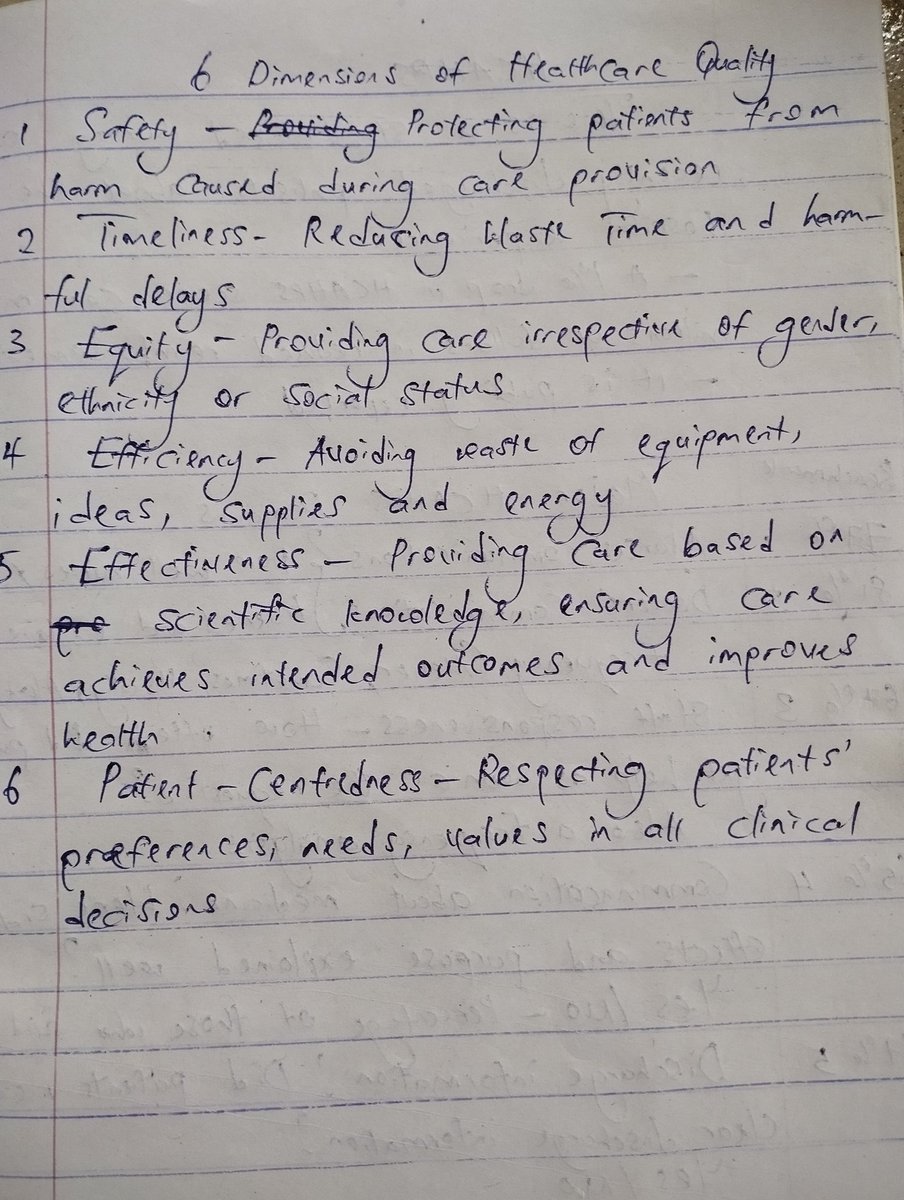 6 Dimensions of Healthcare Quality
1 Safety - Providing Protecting patients from
harm caused during care provision
2 Timeliness - Reducing Waste Time and harm-
ful delays
3 Equity - Providing care irrespective of gender,
ethnicity or social status
4 Efficiency - Avoiding waste of equipment,
ideas, supplies and energy
5 Effectiveness - Providing care based on
pre scientific knowledge, ensuring care
achieves intended outcomes and improves
health
6 Patient - Centredness - Respecting patients'
preferences, needs, values in all clinical
decisions